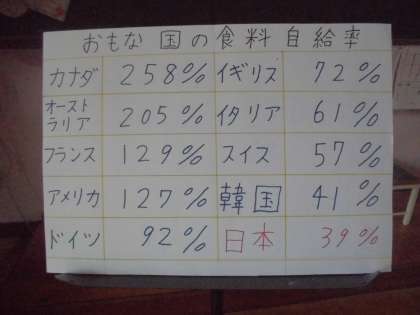 おもな国の食料自給率
カナダ 258% イギリス 72%
オーストラリア 205% イタリア 61%
フランス 129% スイス 57%
アメリカ 127% 韓国 41%
ドイツ 92% 日本 39%